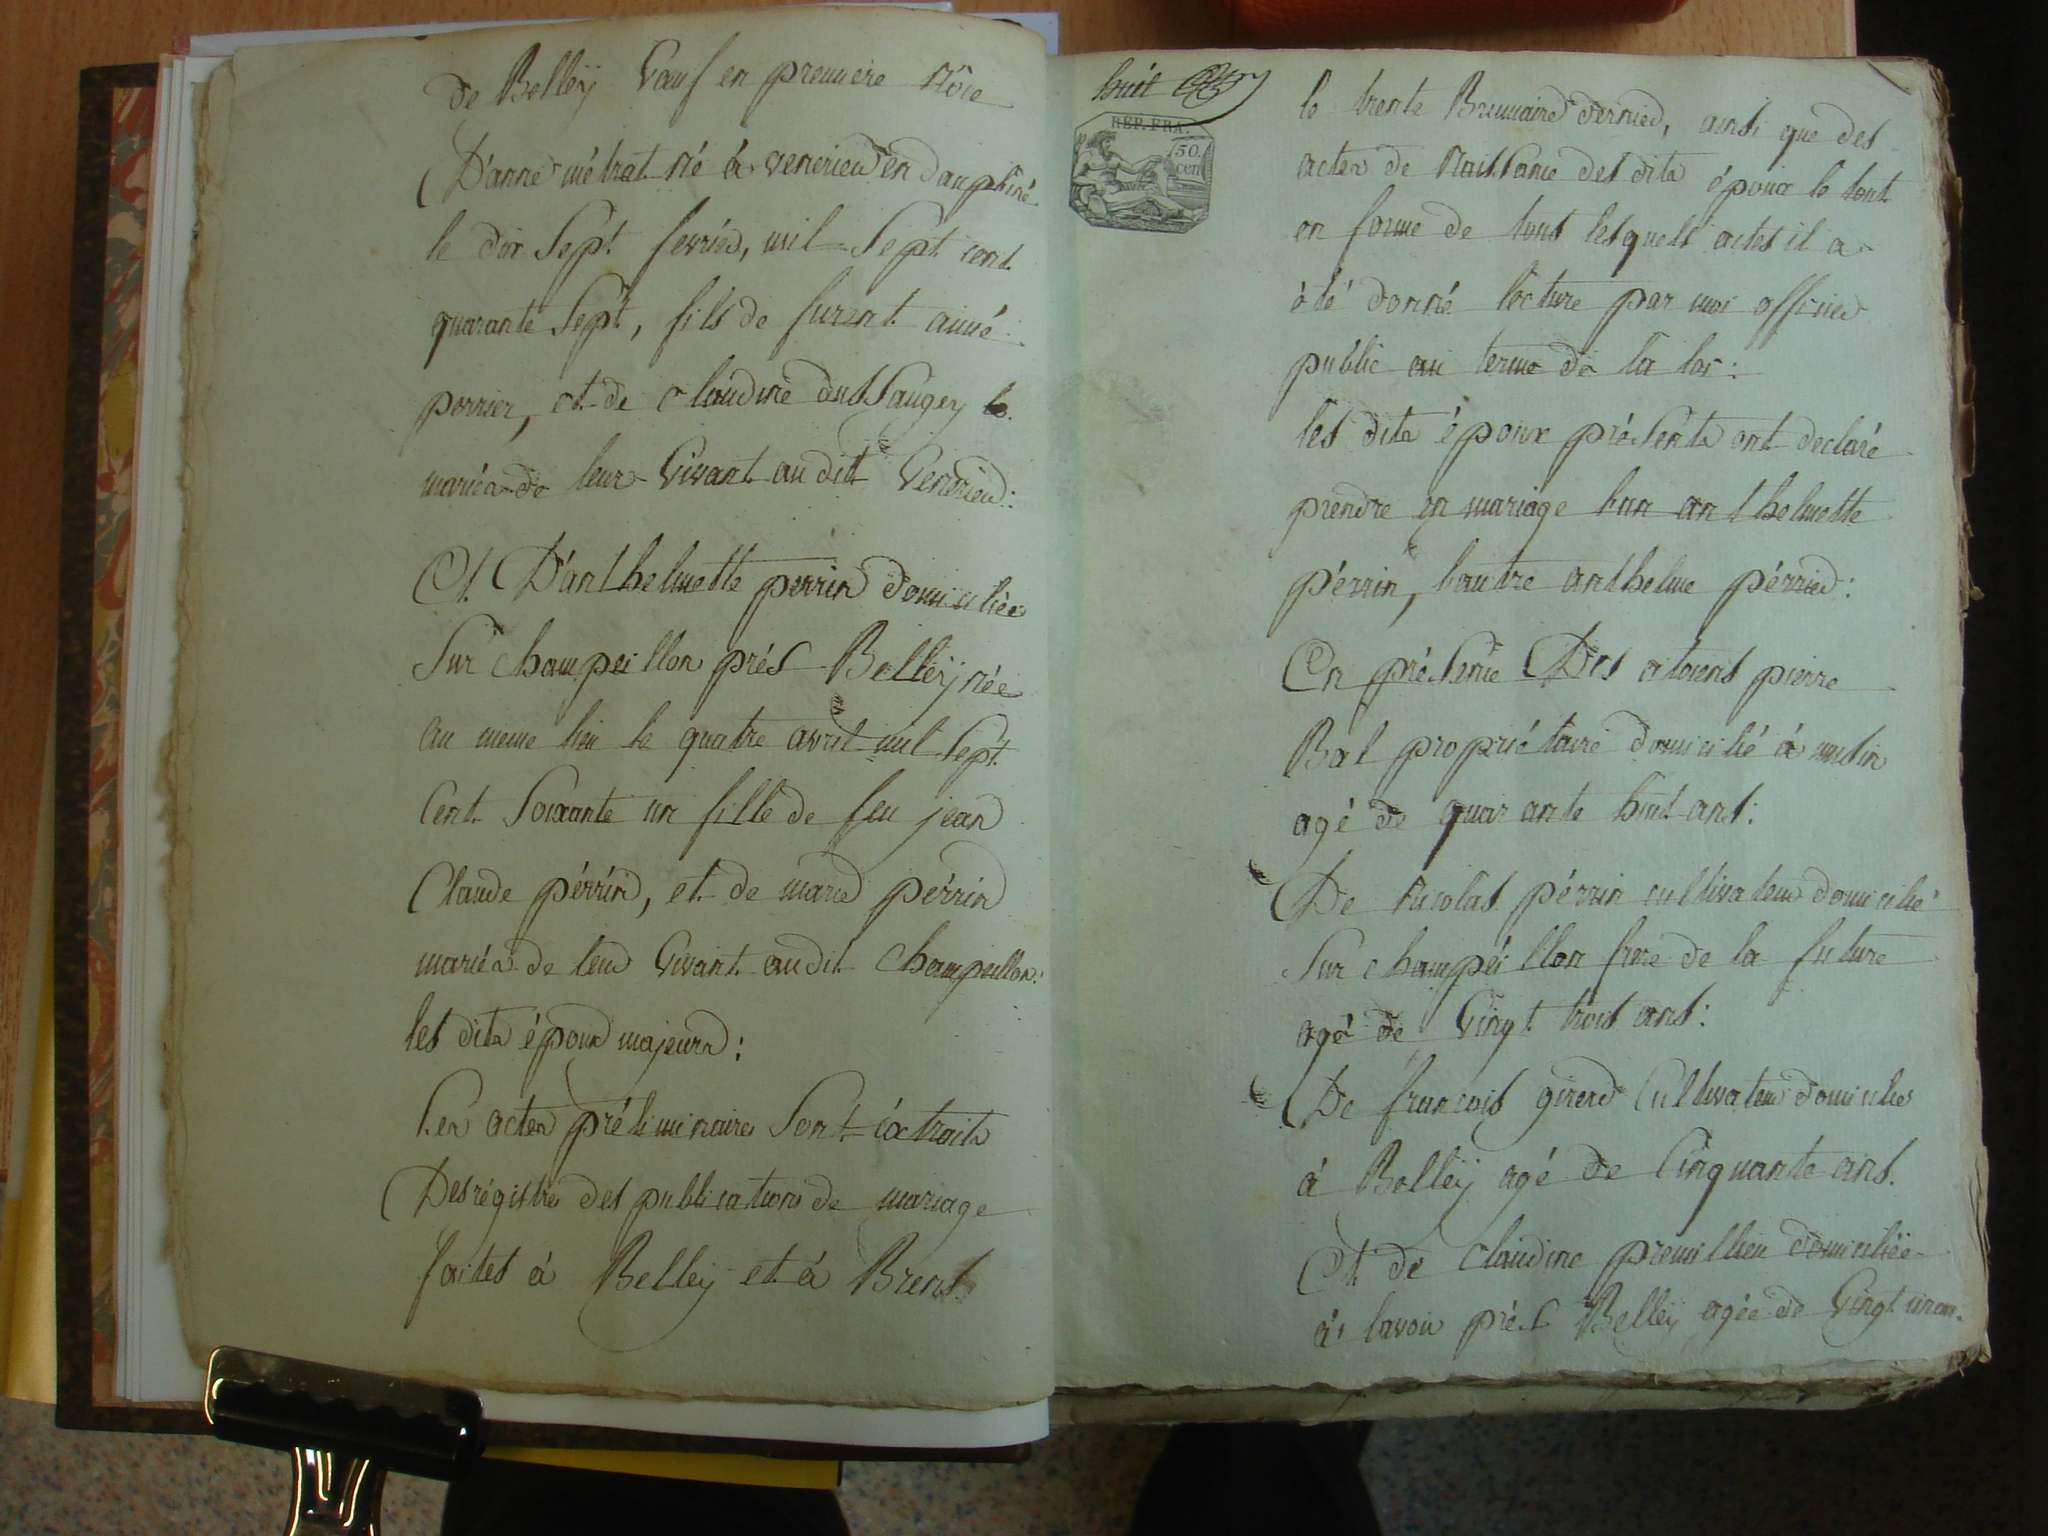 de Belleÿ Vauf en premiere Nôce
D'anne métrat né à venerieu en dauphiné
le dix Sept fevrier, mil Sept cent
quarante Sept, fils de furent aimé
perrier, et de Claudine dusSaugey
mariés de leur Vivant au dit Venerieu:
Et D'anthelmette perrin domiciliée
Sur champeillon prés Belleÿ née
au meme lieu le quatre avril mil Sept
Cent Soixante un fille de feu jean
Claude pérrin, et de marie pérrin
mariés de leur Vivant audit Champeillon:
les dits époux majeurs:
Les actes préliminaires Sont éxtraits
Des régistres des publications de mariage
faites à Belleÿ et à Brens
huit
REP. FRA.
50
cen
le trente Brumaire dernier, ainsi que des
actes de NaisSance des dits époux le tout
en forme de tous lesquels actes il a
été donné lecture par moi officier
public au terme de la loi:
les dits époux présents ont declaré
prendre en mariage l'un anthelmette
pérrin, l'autre anthelme pérrier:
En présence Des citoiens pierre
Bal propriétaire domicilié à musin
agé de quarante huit ans:
De Nicolas pérrin cultivateur domicilié
Sur champéillon frere de la future
agé de Vingt trois ans:
De françois girerd Cultivateur domicilié
à Belleÿ agé de Cinquante ans.
Et de Claudine premillieu domiciliée
à lavour prés Belleÿ agée de Vingt un an.